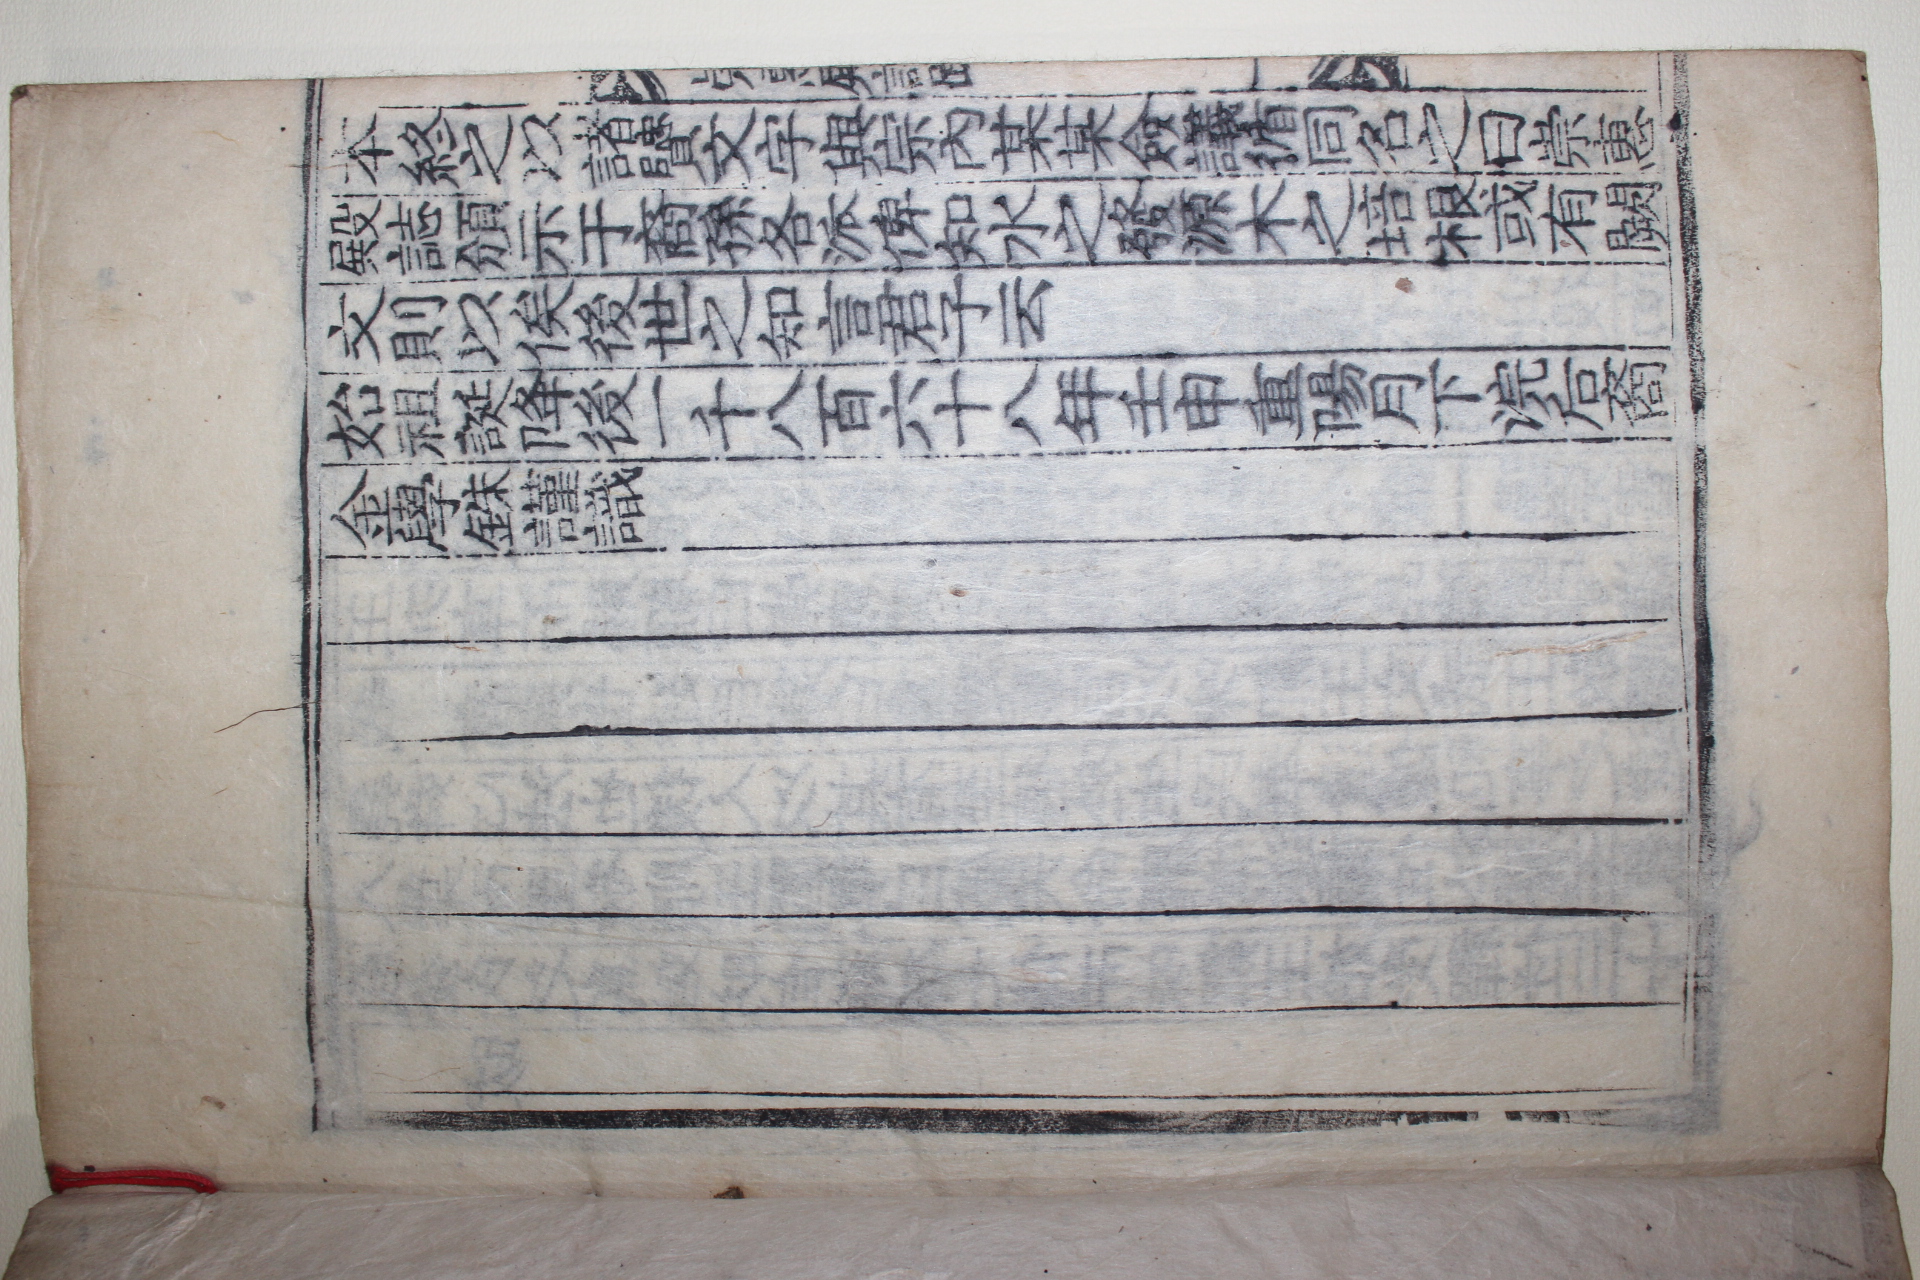 本終之以諸賢文字與宗內某某僉議同名之曰崇惠
殿誌頒示于裔孫各派俾知水之發源木之培根或有闕
文則以俟後世之知言君子云
始祖誕降後一千八百六十八年壬申重陽月下浣后裔
金學銖謹識